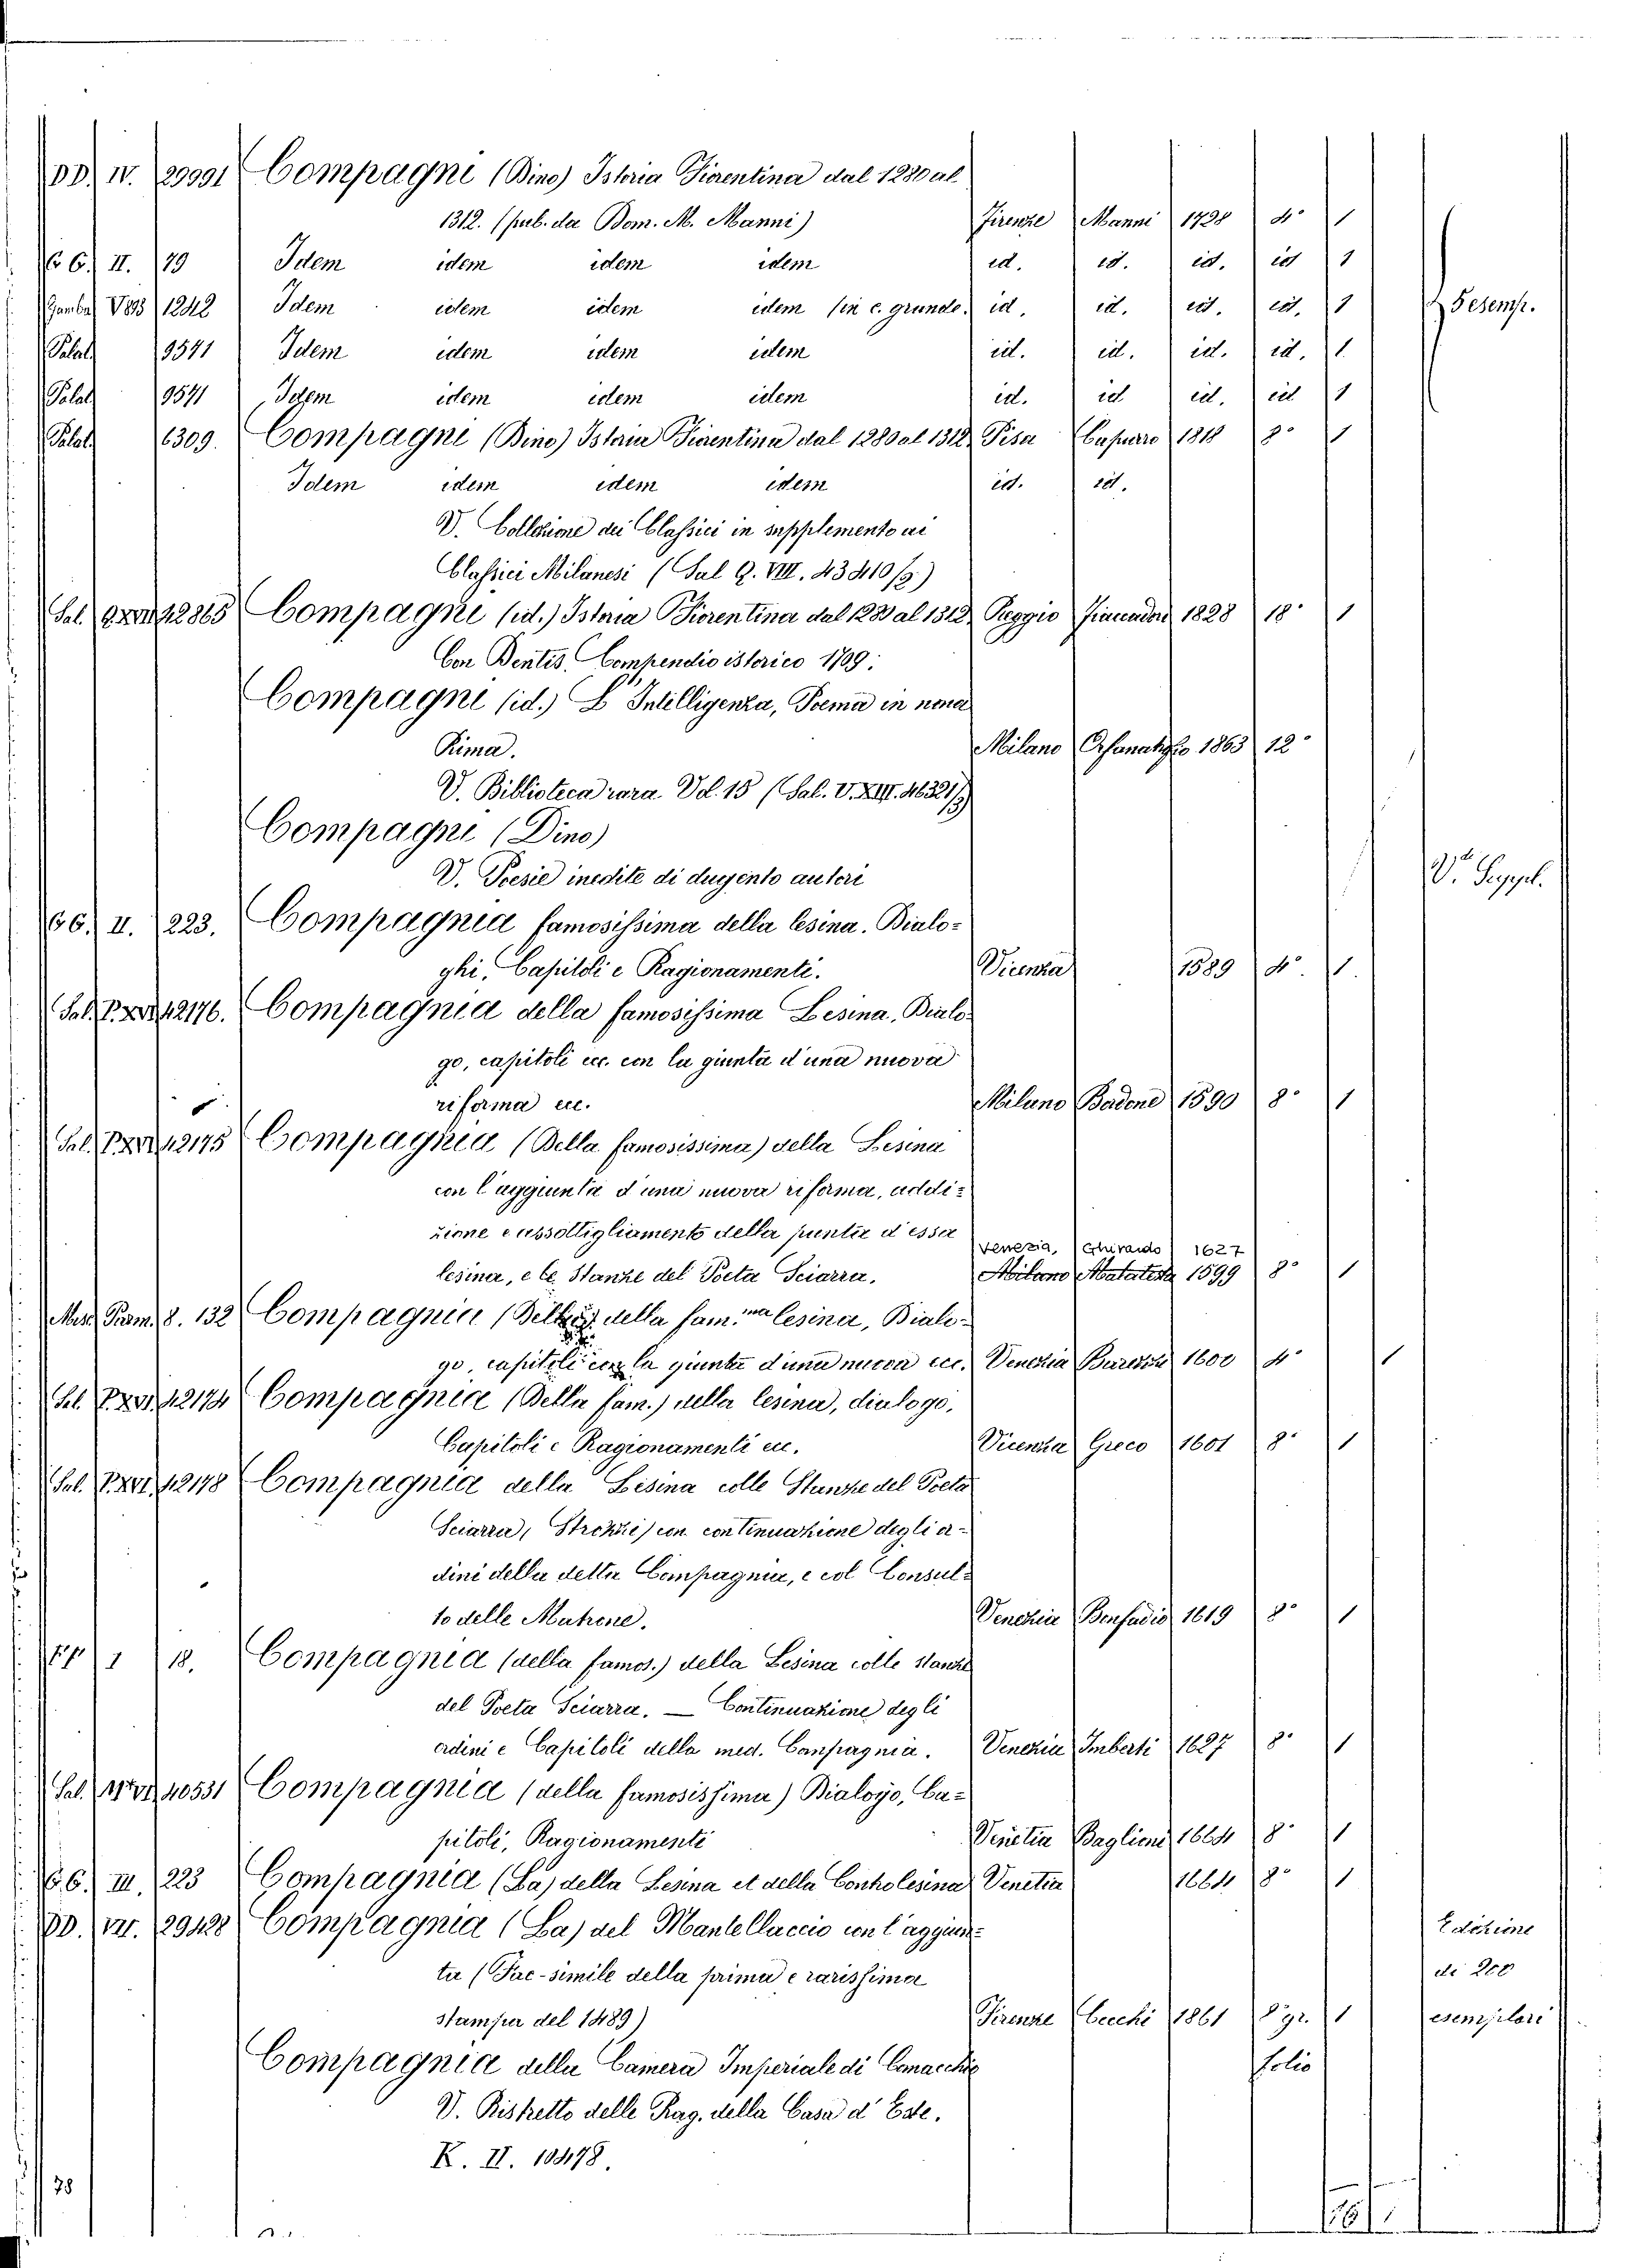 DD. IV. 29991 Compagni (Dino) Istoria Fiorentina dal 1280 al
1312. (pub. da Dom. M. Manni) Firenze Manni 1728 4° 1
66. II. 79 Idem idem idem idem id. id. id. id 1
Gamba 1242 Idem idem idem idem (in c. grande.) id. id. id. id. 1 5 esemp.
Palat 9541 Idem idem idem idem id. id. id. id. 1.
Palat 9541 Idem idem idem idem id. id id. id 1
Palat. 6309. Compagni (Dino) Istoria Fiorentina dal 1280 al 1312. Pisa Capurro 1818 8° 1
Idem idem idem idem id. id.
V. Collezione dei Classici in supplemento ai
Classici Milanesi (Sal Q. VIII. 43410/9)
Sal. 42865 Compagni (id.) Istoria Fiorentina dal 1280 al 1312. Reggio Fiaccadori 1828 18° 1
Con Bentis. Compendio istorico 1709.
Compagni (id.) L'Intelligenza, Poema in nona
Rima. Milano 1863 12°
V. Biblioteca rara Vol. 15 (Sal. V. XIII. 46321/9)
Compagni (Dino)
V. Poesie inedite di dugento autori V. Suppl.
66. II. 223. Compagnia famosissima della lesina. Dialo=
ghi, Capitoli e Ragionamenti. Vicenza 1589 4°. 1.
Sal. P. XVI 42176. Compagnia della famosissima Lesina, Dialo-
go, capitoli ecc. con la giunta d'una nuova
riforma ecc. Milano Bordone 1590 8° 1
Sal. P. XVI 42175 Compagnia (Della famosissima) della Lesina
con l'aggiunta d'una nuova riforma, addi=
zione e assottigliamento della punta d'essa Venezia, Ghirardo 1627
lesina, e le Stanze del Poeta Sciarra. Milano Malatesta 1599 8° 1
Misc. Pram. 8. 132 Compagnia della fam.ma lesina, Dialo-
go, capitoli con la giunta d'una nuova ecc. Venezia 1600 4° 1
Sal. P. XVI. 42174 Compagnia (Della fam.) della lesina, dialogo,
Capitoli e Ragionamenti ecc. Vicenza Greco 1601 8° 1
Sal. P. XVI. 42178 Compagnia della Lesina colle Stanze del Poeta
Sciarra, (Strozzi) con continuazione degli or-
dini della detta Compagnia, e col Consul=
to delle Matrone. Venezia Bonfadio 1619 8° 1
1 18. Compagnia (della famos.) della Lesina colle stanze
del Poeta Sciarra. — Continuazione degli
ordini e Capitoli della med. Compagnia. Venezia Imberti 1627 8° 1
Sal. 40531 Compagnia (della famosissima) Dialogo, Ca=
pitoli, Ragionamenti Venetia Baglioni 1664 8° 1
66. III. 223 Compagnia (La) della Lesina et della Contralesina Venetia 1664 8° 1
DD. VII. 29428 Compagnia (La) del Mantellaccio con l'aggiun= Edizione
ta (Fac-simile della prima e rarissima di 200
stampa del 1489) Firenze Cecchi 1861 8° gr. 1 esemplari
Compagnia della Camera Imperiale di Comacchio folio
V. Ristretto delle Rag. della Casa d'Este.
K. II. 18478.